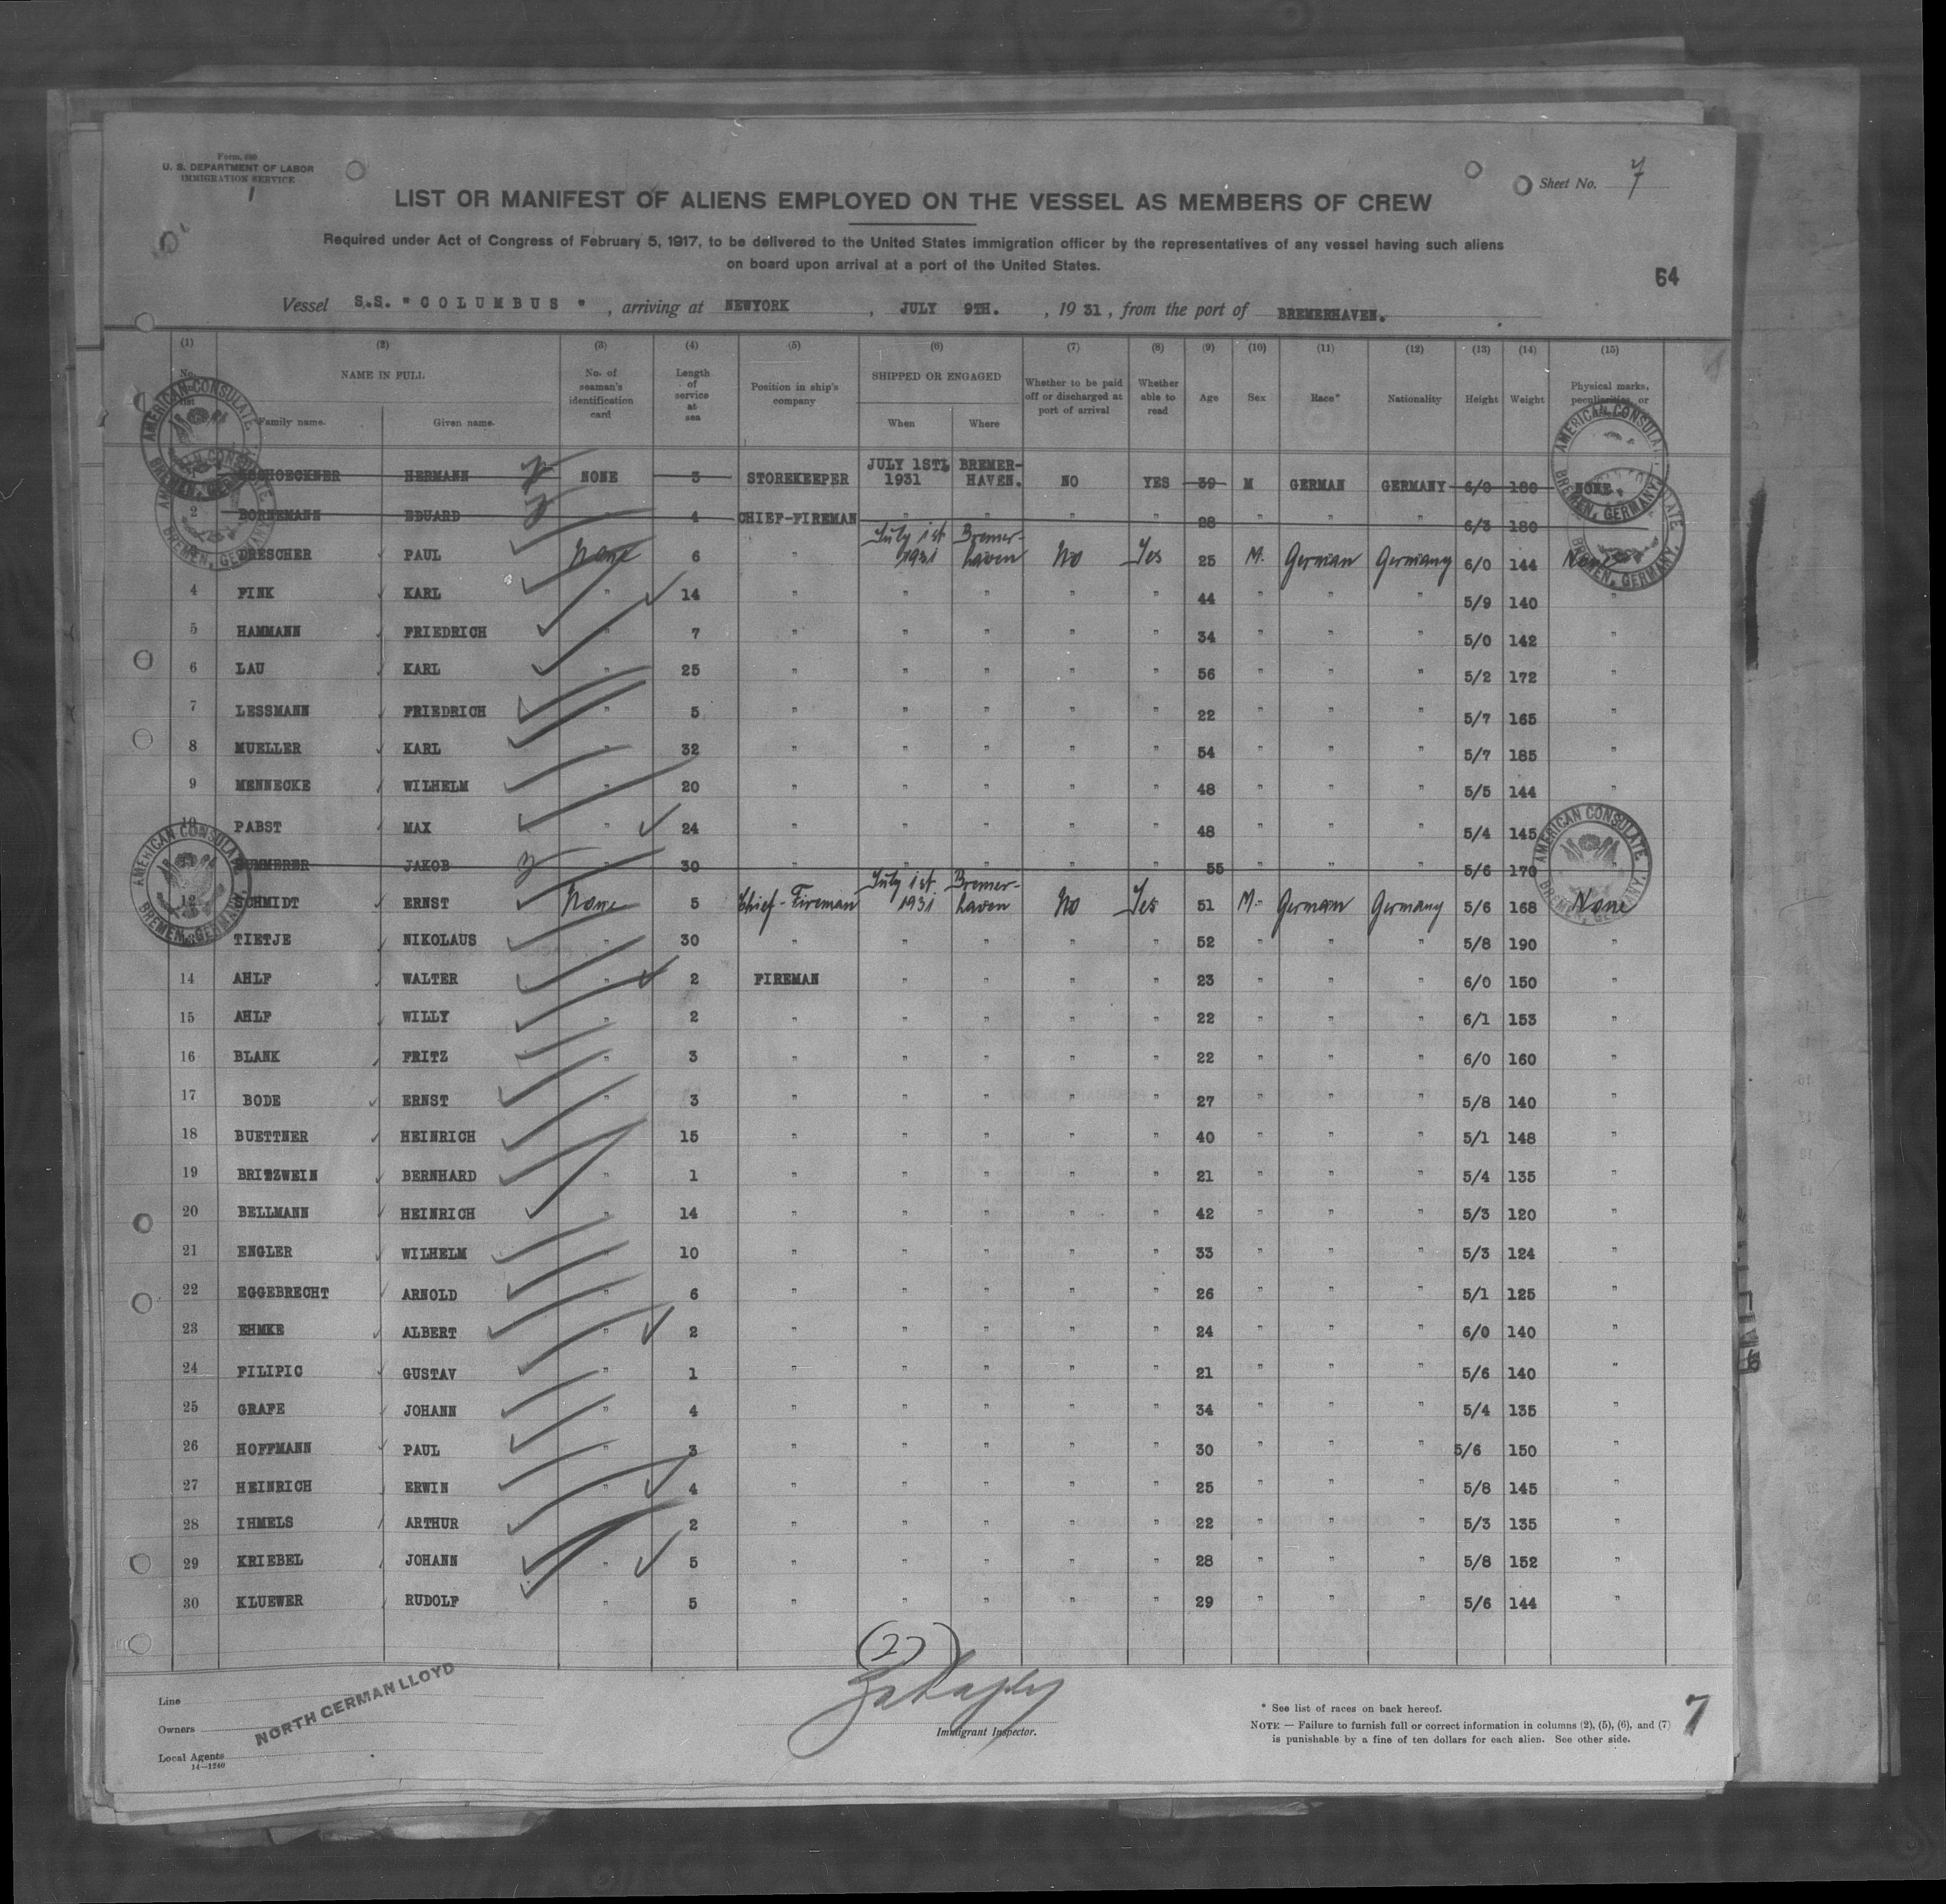 Form 680
U. S. DEPARTMENT OF LABOR
IMMIGRATION SERVICE
Sheet No. 7
LIST OR MANIFEST OF ALIENS EMPLOYED ON THE VESSEL AS MEMBERS OF CREW
Required under Act of Congress of February 5, 1917, to be delivered to the United States immigration officer by the representatives of any vessel having such aliens
on board upon arrival at a port of the United States.
64
Vessel S.S. "COLUMBUS", arriving at NEWYORK, JULY 9TH., 1931, from the port of BREMERHAVEN.
(1) (2) (3) (4) (5) (6) (7) (8) (9) (10) (11) (12) (13) (14) (15)
No. on list NAME IN FULL Family name. Given name. No. of seaman's identification card Length of service at sea Position in ship's company SHIPPED OR ENGAGED When Where Whether to be paid off or discharged at port of arrival Whether able to read Age Sex Race* Nationality Height Weight Physical marks, peculiarities, or
AMERICAN CONSULATE BREMEN, GERMANY.
HERMANN NONE 3 STOREKEEPER JULY 1ST 1931 BREMERHAVEN. NO YES 39 M GERMAN GERMANY 6/0 180 NONE
2 BORNEMANN EDUARD " 4 CHIEF-FIREMAN " " " " 28 " " " 6/3 180
DRESCHER PAUL None 6 " July 1st 1931 Bremerhaven No Yes 25 M. German Germany 6/0 144 None
4 FINK KARL " 14 " " " " " 44 " " " 5/9 140 "
5 HAMMANN FRIEDRICH " 7 " " " " " 34 " " " 5/0 142 "
6 LAU KARL " 25 " " " " " 56 " " " 5/2 172 "
7 LESSMANN FRIEDRICH " 5 " " " " " 22 " " " 5/7 165 "
8 MUELLER KARL " 32 " " " " " 54 " " " 5/7 185 "
9 MENNECKE WILHELM " 20 " " " " " 48 " " " 5/5 144 "
10 PABST MAX " 24 " " " " " 48 " " " 5/4 145
11 JAKOB " 30 " " " " " 55 " " " 5/6 170
12 SCHMIDT ERNST None 5 Chief-Fireman July 1st 1931 Bremerhaven No Yes 51 M. German Germany 5/6 168 None
13 TIETJE NIKOLAUS " 30 " " " " " 52 " " " 5/8 190 "
14 AHLF WALTER " 2 FIREMAN " " " " 23 " " " 6/0 150 "
15 AHLF WILLY " 2 " " " " " 22 " " " 6/1 153 "
16 BLANK FRITZ " 3 " " " " " 22 " " " 6/0 160 "
17 BODE ERNST " 3 " " " " " 27 " " " 5/8 140 "
18 BUETTNER HEINRICH " 15 " " " " " 40 " " " 5/1 148 "
19 BRITZWEIN BERNHARD " 1 " " " " " 21 " " " 5/4 135 "
20 BELLMANN HEINRICH " 14 " " " " " 42 " " " 5/3 120 "
21 ENGLER WILHELM " 10 " " " " " 33 " " " 5/3 124 "
22 EGGEBRECHT ARNOLD " 6 " " " " " 26 " " " 5/1 125 "
23 EHMKE ALBERT " 2 " " " " " 24 " " " 6/0 140 "
24 FILIPIC GUSTAV " 1 " " " " " 21 " " " 5/6 140 "
25 GRAFE JOHANN " 4 " " " " " 34 " " " 5/4 135 "
26 HOFFMANN PAUL " 3 " " " " " 30 " " " 5/6 150 "
27 HEINRICH ERWIN " 4 " " " " " 25 " " " 5/8 145 "
28 IHMELS ARTHUR " 2 " " " " " 22 " " " 5/3 135 "
29 KRIEBEL JOHANN " 5 " " " " " 28 " " " 5/8 152 "
30 KLUEWER RUDOLF " 5 " " " " " 29 " " " 5/6 144 "
(27)
Line
Owners NORTH GERMAN LLOYD
Local Agents
14—1240
Immigrant Inspector.
* See list of races on back hereof.
NOTE — Failure to furnish full or correct information in columns (2), (5), (6), and (7)
is punishable by a fine of ten dollars for each alien. See other side.
7